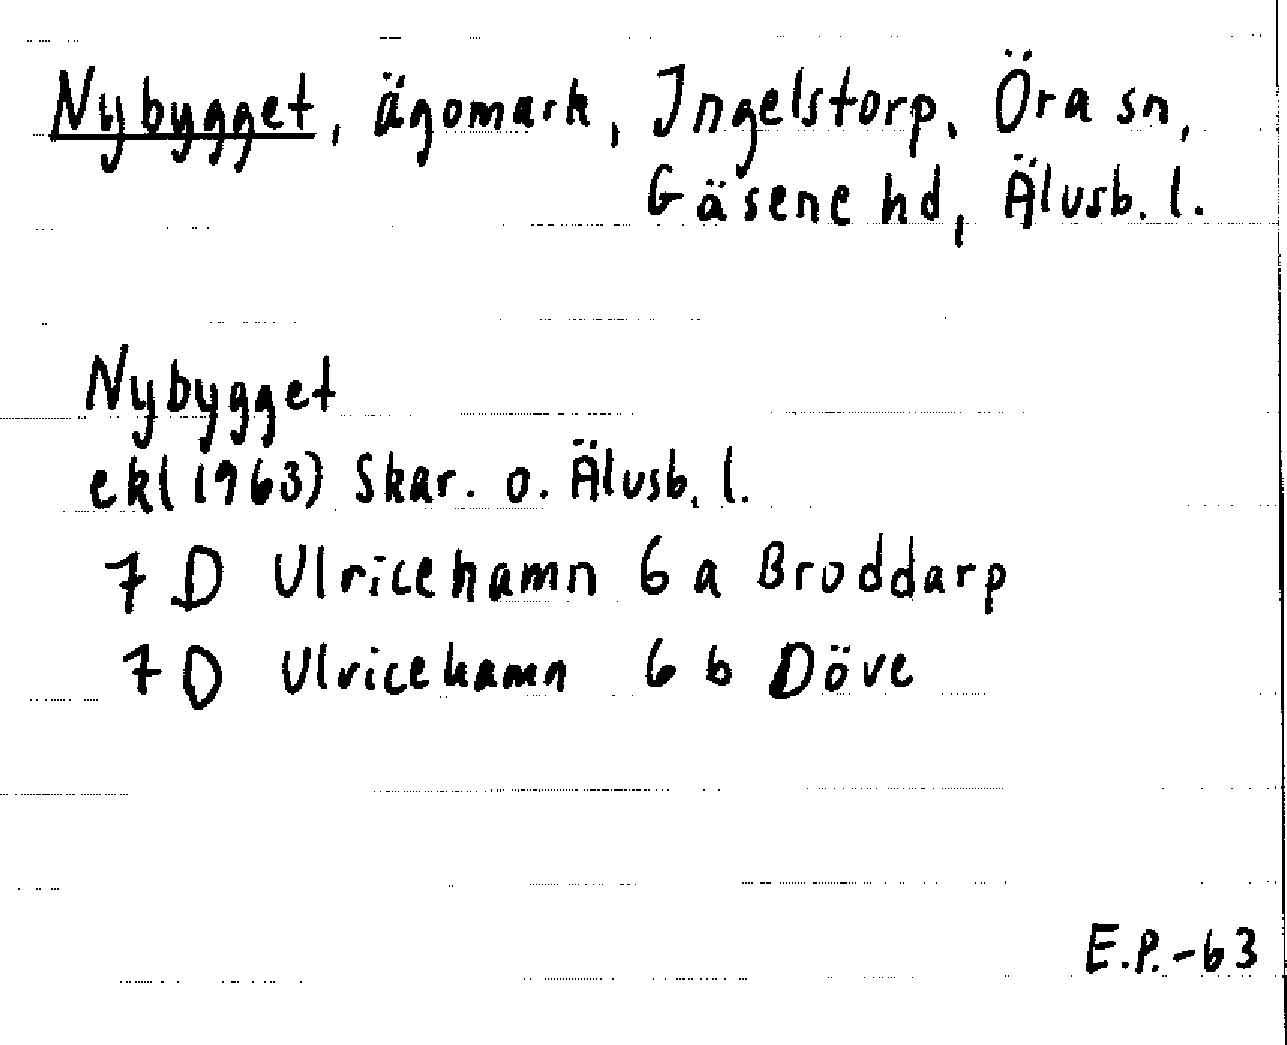 Nybygget, ägomark, Ingelstorp, Öra sn,
Gäsene hd, Älvsb. l.
Nybygget
ekl 1963) Skar. o. Älvsb. l.
7 D Ulricehamn 6 a Broddarp
7 D Ulricehamn 6 b Döve
E.P.-63